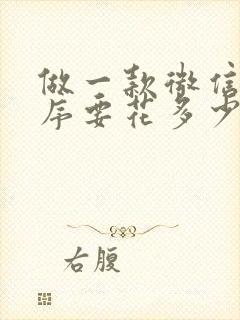 做一款微信
序要花多少
右腹